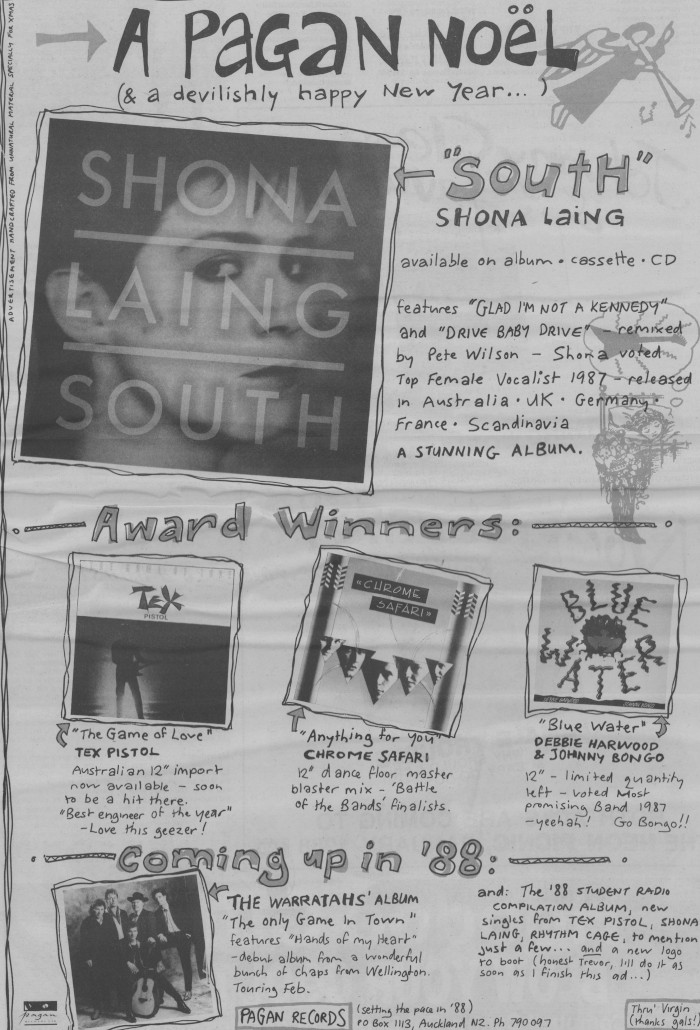 ADVERTISEMENT HANDCRAFTED FROM UNNATURAL MATERIAL SPECIALLY FOR XMAS
A PAGAN NOËL
(& a devilishly happy New Year... )
SHONA
LAING
SOUTH
"SOUTH"
SHONA LAING
available on album • cassette • CD
features "GLAD I'M NOT A KENNEDY"
and "DRIVE BABY DRIVE" – remixed
by Pete Wilson – Shona voted
Top Female Vocalist 1987 – released
in Australia • UK • Germany •
France • Scandinavia
A STUNNING ALBUM.
Award Winners:
TEX
PISTOL
"The Game of Love"
TEX PISTOL
Australian 12" import
now available – soon
to be a hit there.
"Best engineer of the year"
– Love this geezer!
"CHROME
SAFARI"
"Anything for you"
CHROME SAFARI
12" dance floor master
blaster mix – 'Battle
of the Bands' finalists.
BLUE
WATER
"Blue Water"
DEBBIE HARWOOD
& JOHNNY BONGO
12" – limited quantity
left – voted Most
promising Band 1987
– yeehah! Go Bongo!!
Coming up in '88:
THE WARRATAHS' ALBUM
"The only Game In Town"
features "Hands of my Heart"
– debut album from a wonderful
bunch of chaps from Wellington.
Touring Feb.
and: The '88 STUDENT RADIO
COMPILATION ALBUM, new
singles from TEX PISTOL, SHONA
LAING, RHYTHM CAGE, to mention
just a few... and a new logo
to boot (honest Trevor, I'll do it as
soon as I finish this ad...)
pagan
PAGAN RECORDS
(setting the pace in '88)
PO Box 1113, Auckland NZ. Ph 790 097
Thru' Virgin
(thanks gals!)